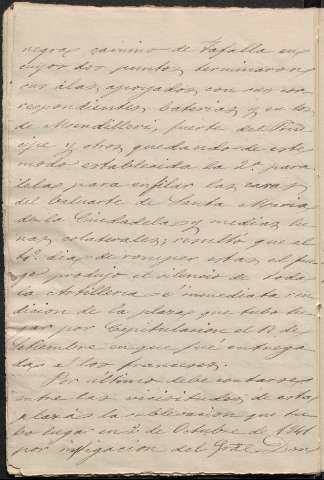 negras camino de Tafalla en
cuyos dos puntos terminaron
sus álas apoyados con sus cor
respondientes baterias y en los
de Mendilleri, fuerte del Prin
cipe y otros quedando de este
modo establecida la 2ª para
lelas para enfilar las caras
del baluarte de Santa Maria
de la Ciudadela y medias lu
nas colaterales; resultó que al
4º dia, de romper estas el fue
go produjo el silencio de toda
la Artilleria é inmediata ren
dicion de la plaza que tubo lu
gar por Capitulacion el 17 de
Setiembre en que fué entrega
da á los franceses.
Por último debe contarse
entre las vicisitudes de esta
plaza la sublevacion que tu
bo lugar en 2 de Octubre de 1841
por instigacion del Gral Don